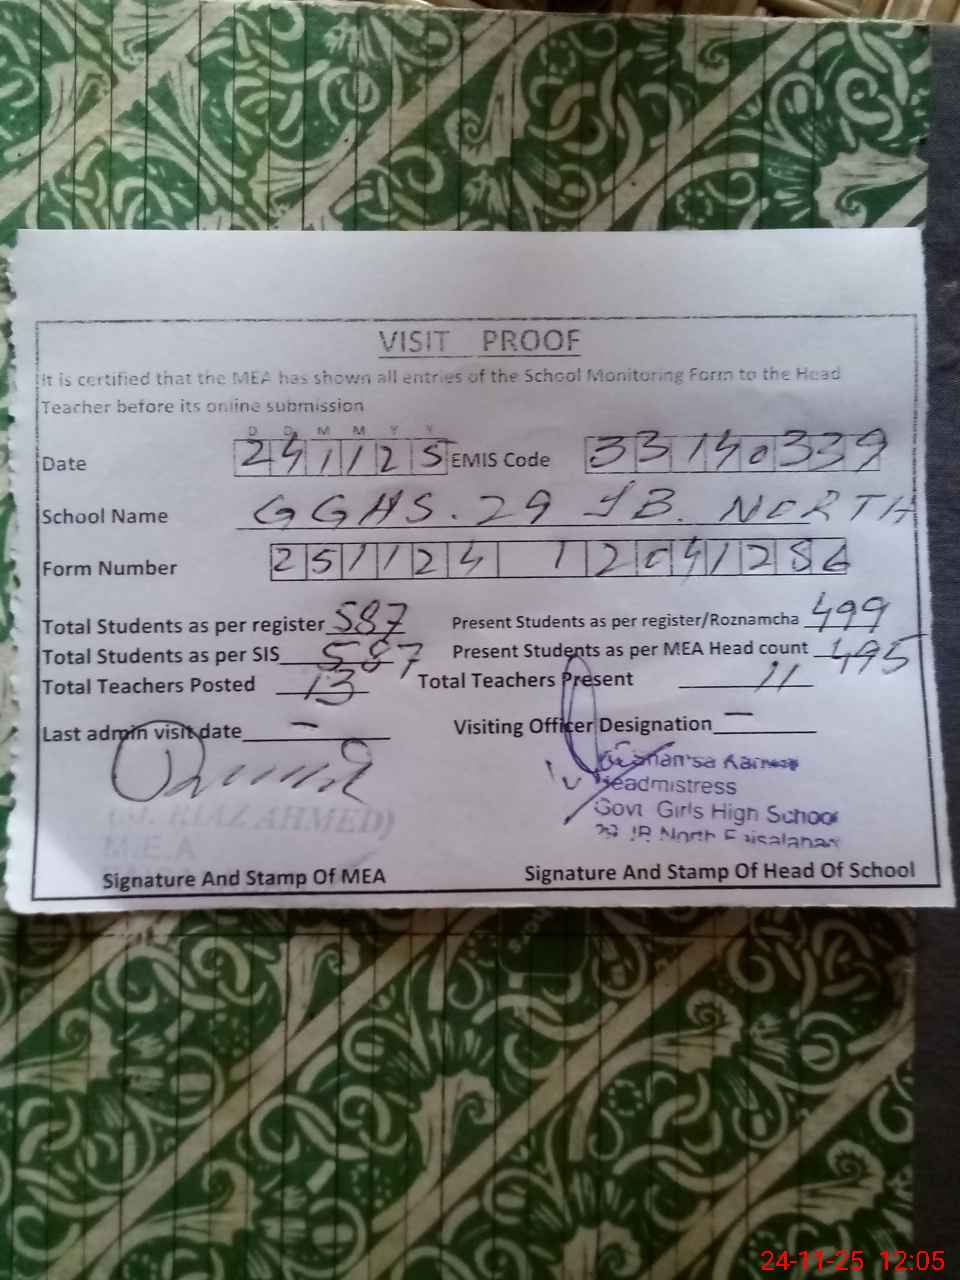 VISIT PROOF
It is certified that the MEA has shown all entries of the School Monitoring Form to the Head
Teacher before its online submission
D D M M Y Y
Date 241125 EMIS Code 33140339
School Name GGHS. 29 JB. NORTH
Form Number 251124 12041286
Total Students as per register 587 Present Students as per register/Roznamcha 499
Total Students as per SIS 587 Present Students as per MEA Head count 495
Total Teachers Posted 13 Total Teachers Present 11
Last admin visit date – Visiting Officer Designation –
Headmistress
(M. RIAZ AHMED) Govt Girls High School
M.E.A 29 JB North Faisalabad
Signature And Stamp Of MEA Signature And Stamp Of Head Of School
24-11-25 12:05